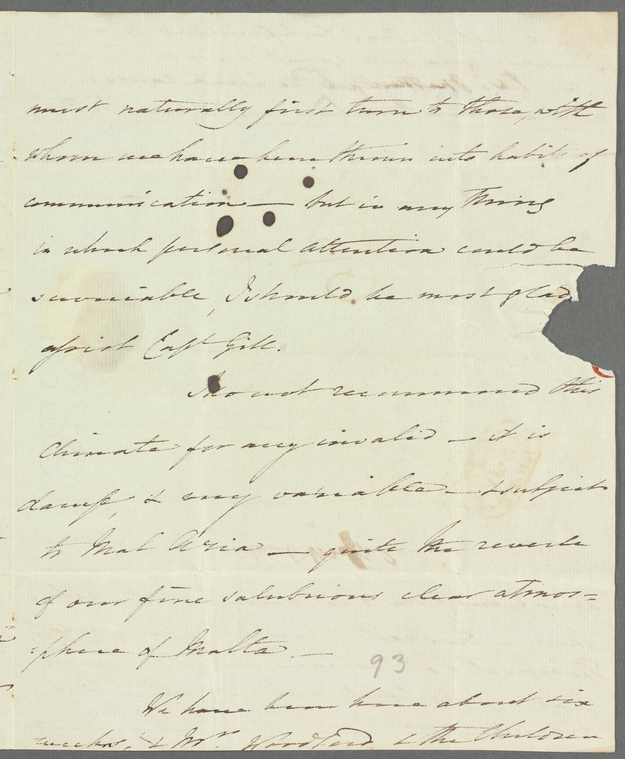 must naturally first turn to those, with
whom we have been thrown into habits of
communication — but in any thing
in which personal attention could be
serviceable, I should be most glad
assist Capt Gill.
I do not recommend this
Climate for any invalid — it is
damp, & very variable — & subject
to Mal Aria — quite the reverse
of our fine salubrious clear atmos=
=phere of Malta. —
93
We have been here about six
weeks, & Mrs. Woodford & the Children